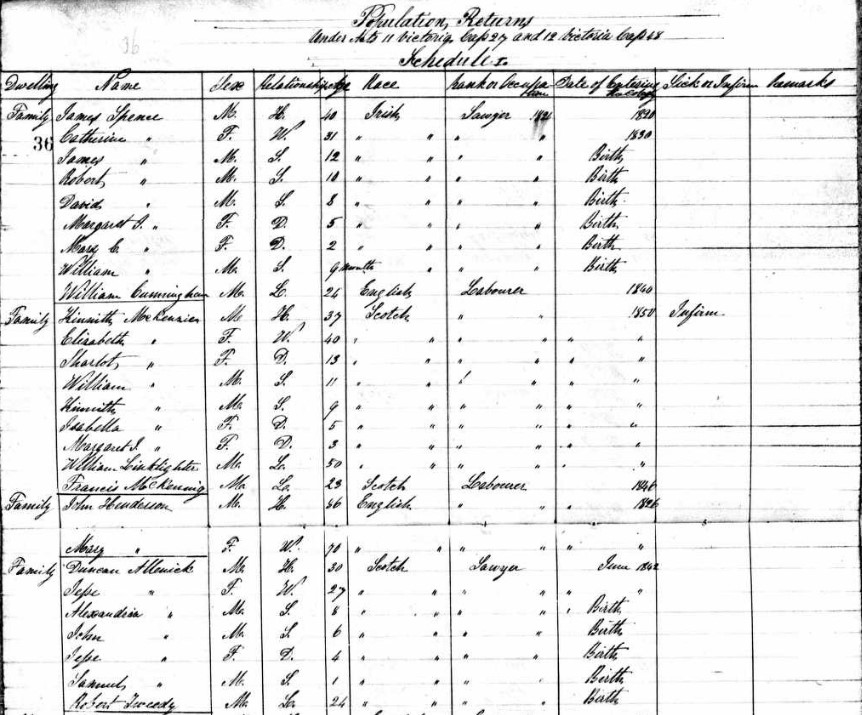 36
Population Returns
Under Acts 11 Victoria Cap 27 and 12 Victoria Cap 48
Schedule 1.
Dwelling Name Sex Relationship Age Race Rank or Occupation Date of Entering Sick or Infirm Remarks
Family James Spence M. H. 40 Irish Sawyer 1821 1820
36 Catherine " F. W. 31 " " " " 1830
James " M. S. 12 " " " " Birth
Robert " M. S. 10 " " " " Birth
David " M. S. 8 " " " " Birth
Margaret J. " F. D. 5 " " " " Birth
Mary E. " F. D. 2 " " " " Birth
William " M. S. 9 months " " " Birth
William Cunningham M. L. 24 English Labourer 1840
Family Hinnith McKenzies M. H. 37 Scotch " " 1850 Infirm
Elizabeth " F. W. 40 " " " " " "
Sharlot " F. D. 13 " " " " " "
William " M. S. 11 " " " " " "
Hinnith " M. S. 9 " " " " " "
Isabella " F. D. 5 " " " " " "
Margaret J. " F. D. 3 " " " " " "
William Linklighter M. Lo. 50 " " " " " "
Francis McKennig M. Lo. 23 Scotch Labourer 1846
Family John Henderson M. H. 66 English " " 1826
Mary " F. W. 70 " " " " " "
Family Duncan M. H. 30 Scotch Sawyer June 1842
Jesse " F. W. 27 " " " " " "
Alexandria " M. S. 8 " " " " " Birth
John " M. S. 6 " " " " Birth
Jesse " F. D. 4 " " " " Birth
Samuel " M. S. 1 " " " " Birth
Robert Tweedy M. Lo. 24 " " " " Birth